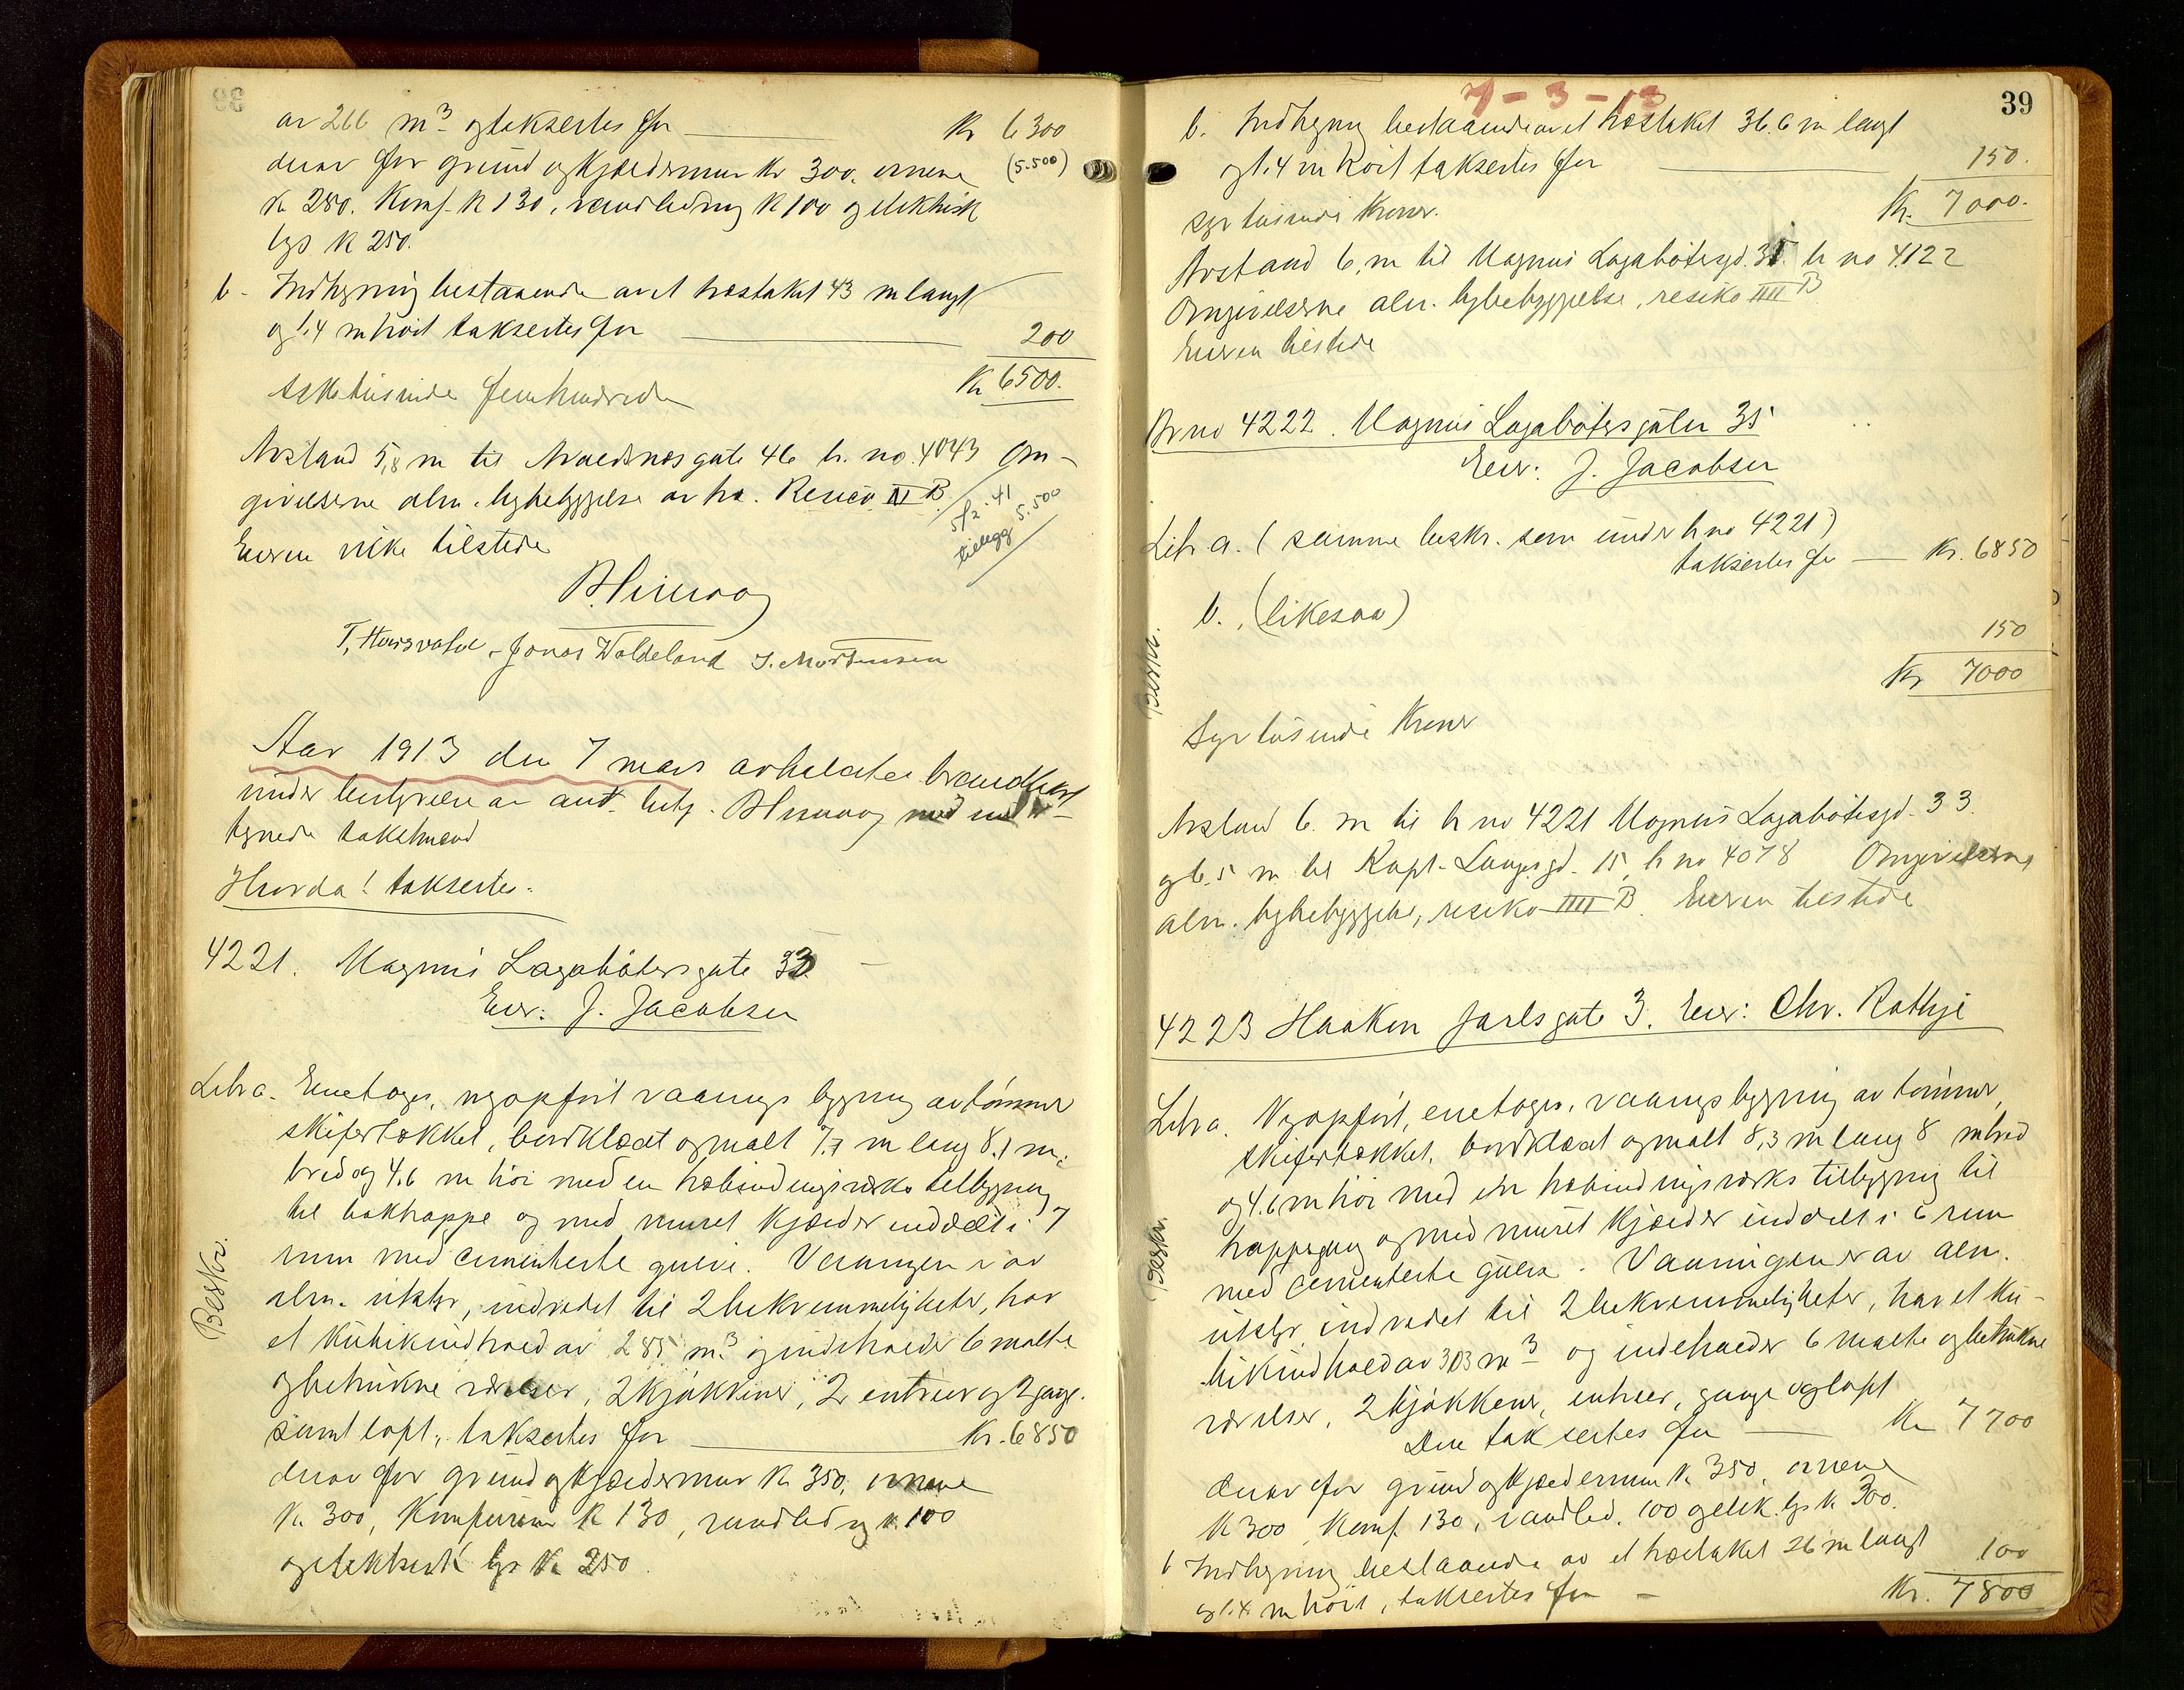 av 266 m3 og taksertes for Kr 6300
derav for grund og kjældermur Kr 300, ovnene (5.500)
K 280. Komf. K 130, vandledning K 100 og elektrisk
lys K 250.
b. Indhegning bestaaende av et træstaket 43 m langt
og 1.4 m höit taksertes for 200
sekstusinde femhundrede Kr 6500.
Avstand 5,8 m til Avaldsnesgate 46 br. no. 4043 Om-
givelserne alm. bybebyggelse av træ. Resico III B
5/2-41
tillegg 5.500
Eieren ikke tilstede
T. Hausvalee - Jonas Woldeland J. Mortensen
Aar 1913 den 7 mars avholdtes brandtakst
under bestyrelse av
tegnede takstmænd
Hvorda! taksertes.
4221. Magnus Lagabötersgate 33
Eier: J. Jacobsen
Litr a. Enetages, nyopfört vaanings bygning av tömmer
skifertækket, bordklædt og malt 7.7 m lang 8.1 m.
bred og 4.6 m höi med en træbindingsværks tilbygning
til baktrappe og med muret kjælder inddelt i 7
rum med cementerte gulve. Vaaningen er av
Beskr.
alm. utstyr, indredet til 2 bekvemmeligheter, har
et kubikindhold av 285 m3 og indeholder 6 malte
og betrukne værelser, 2 kjökkener, 2 entreer og 2 gange
samt loft, taksertes for Kr. 6850
derav for grund og kjældermur K 350, ovnene
K. 300, Komfurerne K 130, vandledng K. 100
og elektrisk lys K 250.
39
7-3-13
b. Indhegning bestaaende av et træstaket 36.6 m langt
og 1.4 m höit taksertes for 150.
syv tusinde Kroner. Kr. 7000.
Avstand 6. m til Magnus Lagabötersgd. 35. br no 4122
Omgivelserne alm. bybebyggelse, resiko IIII B
Eieren tilstede
Br no 4222. Magnus Lagabötersgaten 35
Eier: J. Jacobsen
Litr a. (samme beskr. som under br no 4221)
taksertes for Kr. 6850
b. (likesaa)
150
Beskr.
Kr 7000
Syv tusinde Kroner
Avstand 6. m til br no 4221 Magnus Lagabötersgd. 33.
og 6.5 m til Kapt. Langesgd. 15, br no 4078 Omgivelserne
alm. bybebyggelse, resiko IIII B. Eieren tilstede
4223 Haakon Jarlsgate 3. Eier: Chr. Rathje
Litr a. Nyopfört, enetages, vaanings bygning av tömmer,
skifertækket, bordklædt og malt 8,3 m lang 8 m bred
og 4.6 m höi med en træbindingsværks tilbygning til
trappegang og med muret kjælder inddelt i 6 rum
Beskr.
med cementerte gulve. Vaaningen er av alm.
utstyr indredet til 2 bekvemmeligheter, har et ku-
bikindhold av 303 m3 og indeholder 6 malte og betrukne
værelser, 2 kjökkener, entreer, gange og loft
Den taksertes for Kr 7700
derav for grund og kjældermur K. 350, ovnene
K 300, Komf. 130, vandled. 100 og elek. lys K 300.
b Indhegning bestaaende av et træstaket 26 m langt 100
og 1.4 m höit, taksertes for Kr. 7800